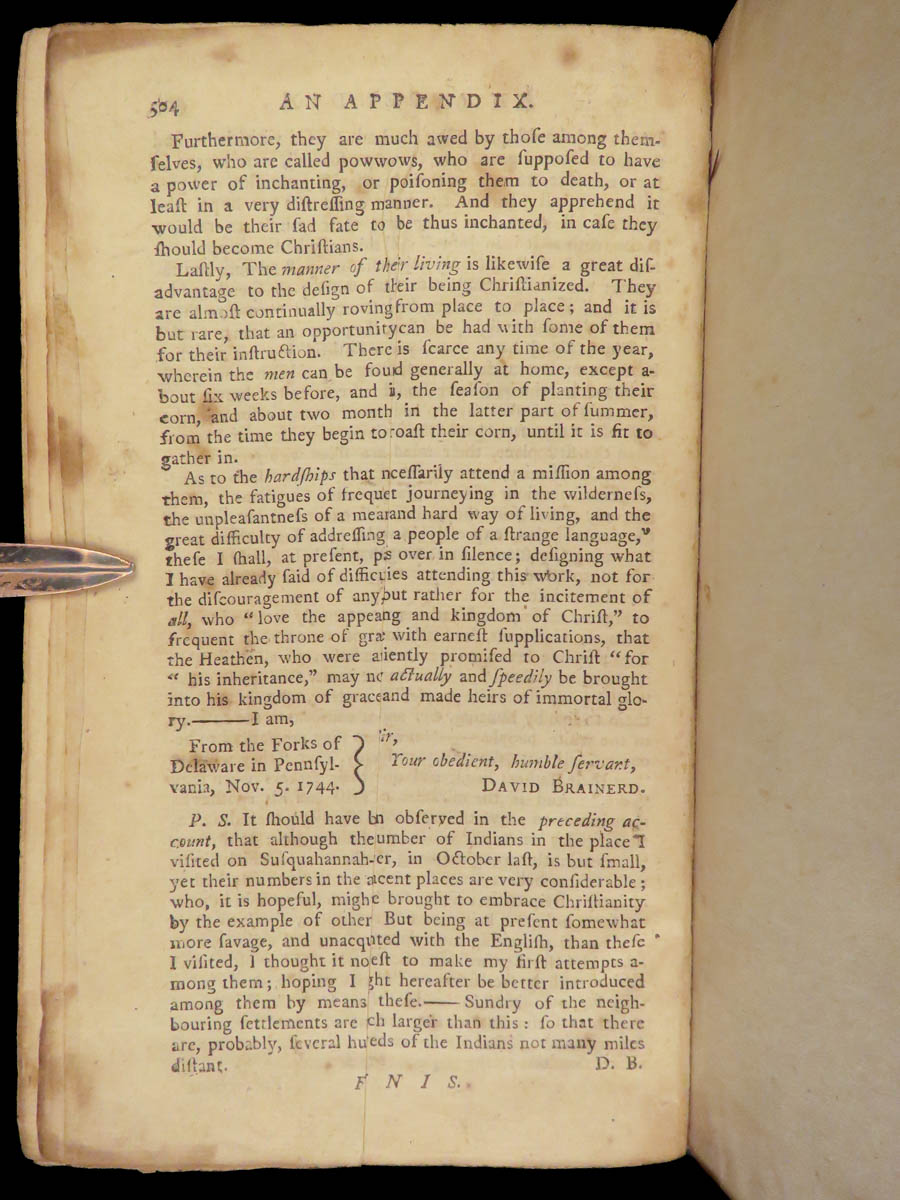 504 AN APPENDIX.
Furthermore, they are much awed by thoſe among them-
ſelves, who are called powwows, who are ſuppoſed to have
a power of inchanting, or poiſoning them to death, or at
leaſt in a very diſtreſſing manner. And they apprehend it
would be their ſad fate to be thus inchanted, in caſe they
ſhould become Chriſtians.
Laſtly, The manner of their living is likewiſe a great diſ-
advantage to the deſign of their being Chriſtianized. They
are almoſt continually roving from place to place; and it is
but rare, that an opportunity can be had with ſome of them
for their inſtruction. There is ſcarce any time of the year,
wherein the men can be foud generally at home, except a-
bout ſix weeks before, and i, the ſeaſon of planting their
corn, and about two month in the latter part of ſummer,
from the time they begin to roaſt their corn, until it is fit to
gather in.
As to the hardſhips that nceſſarily attend a miſſion among
them, the fatigues of frequet journeying in the wilderneſs,
the unpleaſantneſs of a mean and hard way of living, and the
great difficulty of addreſſing a people of a ſtrange language,
theſe I ſhall, at preſent, ps over in ſilence; deſigning what
I have already ſaid of difficuies attending this work, not for
the diſcouragement of any but rather for the incitement of
all, who “love the appeang and kingdom of Chriſt,” to
frequent the throne of gra with earneſt ſupplications, that
the Heathen, who were aiently promiſed to Chriſt “for
“ his inheritance,” may no actually and ſpeedily be brought
into his kingdom of grace and made heirs of immortal glo-
ry.——I am,
ir,
From the Forks of
Delaware in Pennſyl-
vania, Nov. 5. 1744.
Your obedient, humble ſervant,
DAVID BRAINERD.
P. S. It ſhould have bn obſerved in the preceding ac-
count, that although the umber of Indians in the place I
viſited on Suſquahannah-er, in October laſt, is but ſmall,
yet their numbers in the acent places are very conſiderable;
who, it is hopeful, migh e brought to embrace Chriſtianity
by the example of other But being at preſent ſomewhat
more ſavage, and unacquted with the Engliſh, than theſe
I viſited, I thought it no eſt to make my firſt attempts a-
mong them; hoping I ght hereafter be better introduced
among them by means theſe.—— Sundry of the neigh-
bouring ſettlements are ch larger than this: ſo that there
are, probably, ſeveral hu eds of the Indians not many miles
diſtant. D. B.
F NIS.